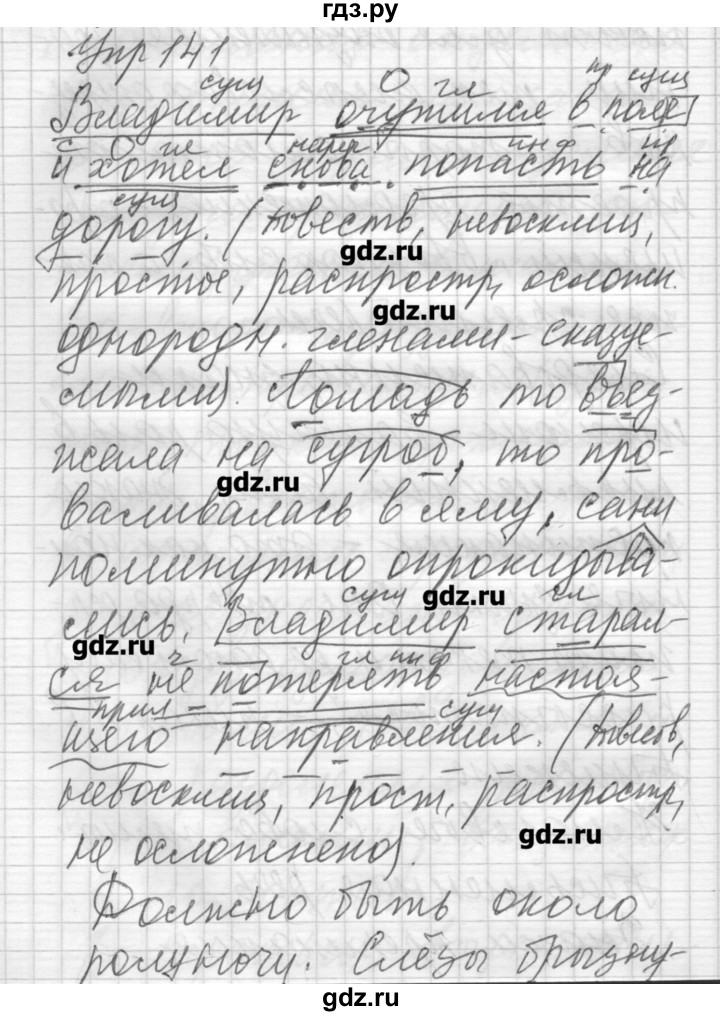 гдз.ру
Упр 141
сущ О гл пр сущ
Владимир очутился в поле
с О гл нареч инф пр
и хотел снова попасть на
сущ
дорогу. (Повеств, невосклиц,
gdz.ru
простое, распростр, осложн.
gdz.ru
однородн. членами - сказуе-
мыми). Лошадь то въез-
жала на сугроб, то про-
gdz.ru
валивалась в яму, сани
поминутно опрокидыва-
сущ gdz.ru гл
лись. Владимир старал-
gdz.ru
ч гл инф
ся не потерять настоя-
прил сущ
щего направления. (Повеств,
невосклиц, прост, распростр,
gdz.ru
не осложнено).
Должно быть около
полуночи. Слёзы брызну-
gdz.ru